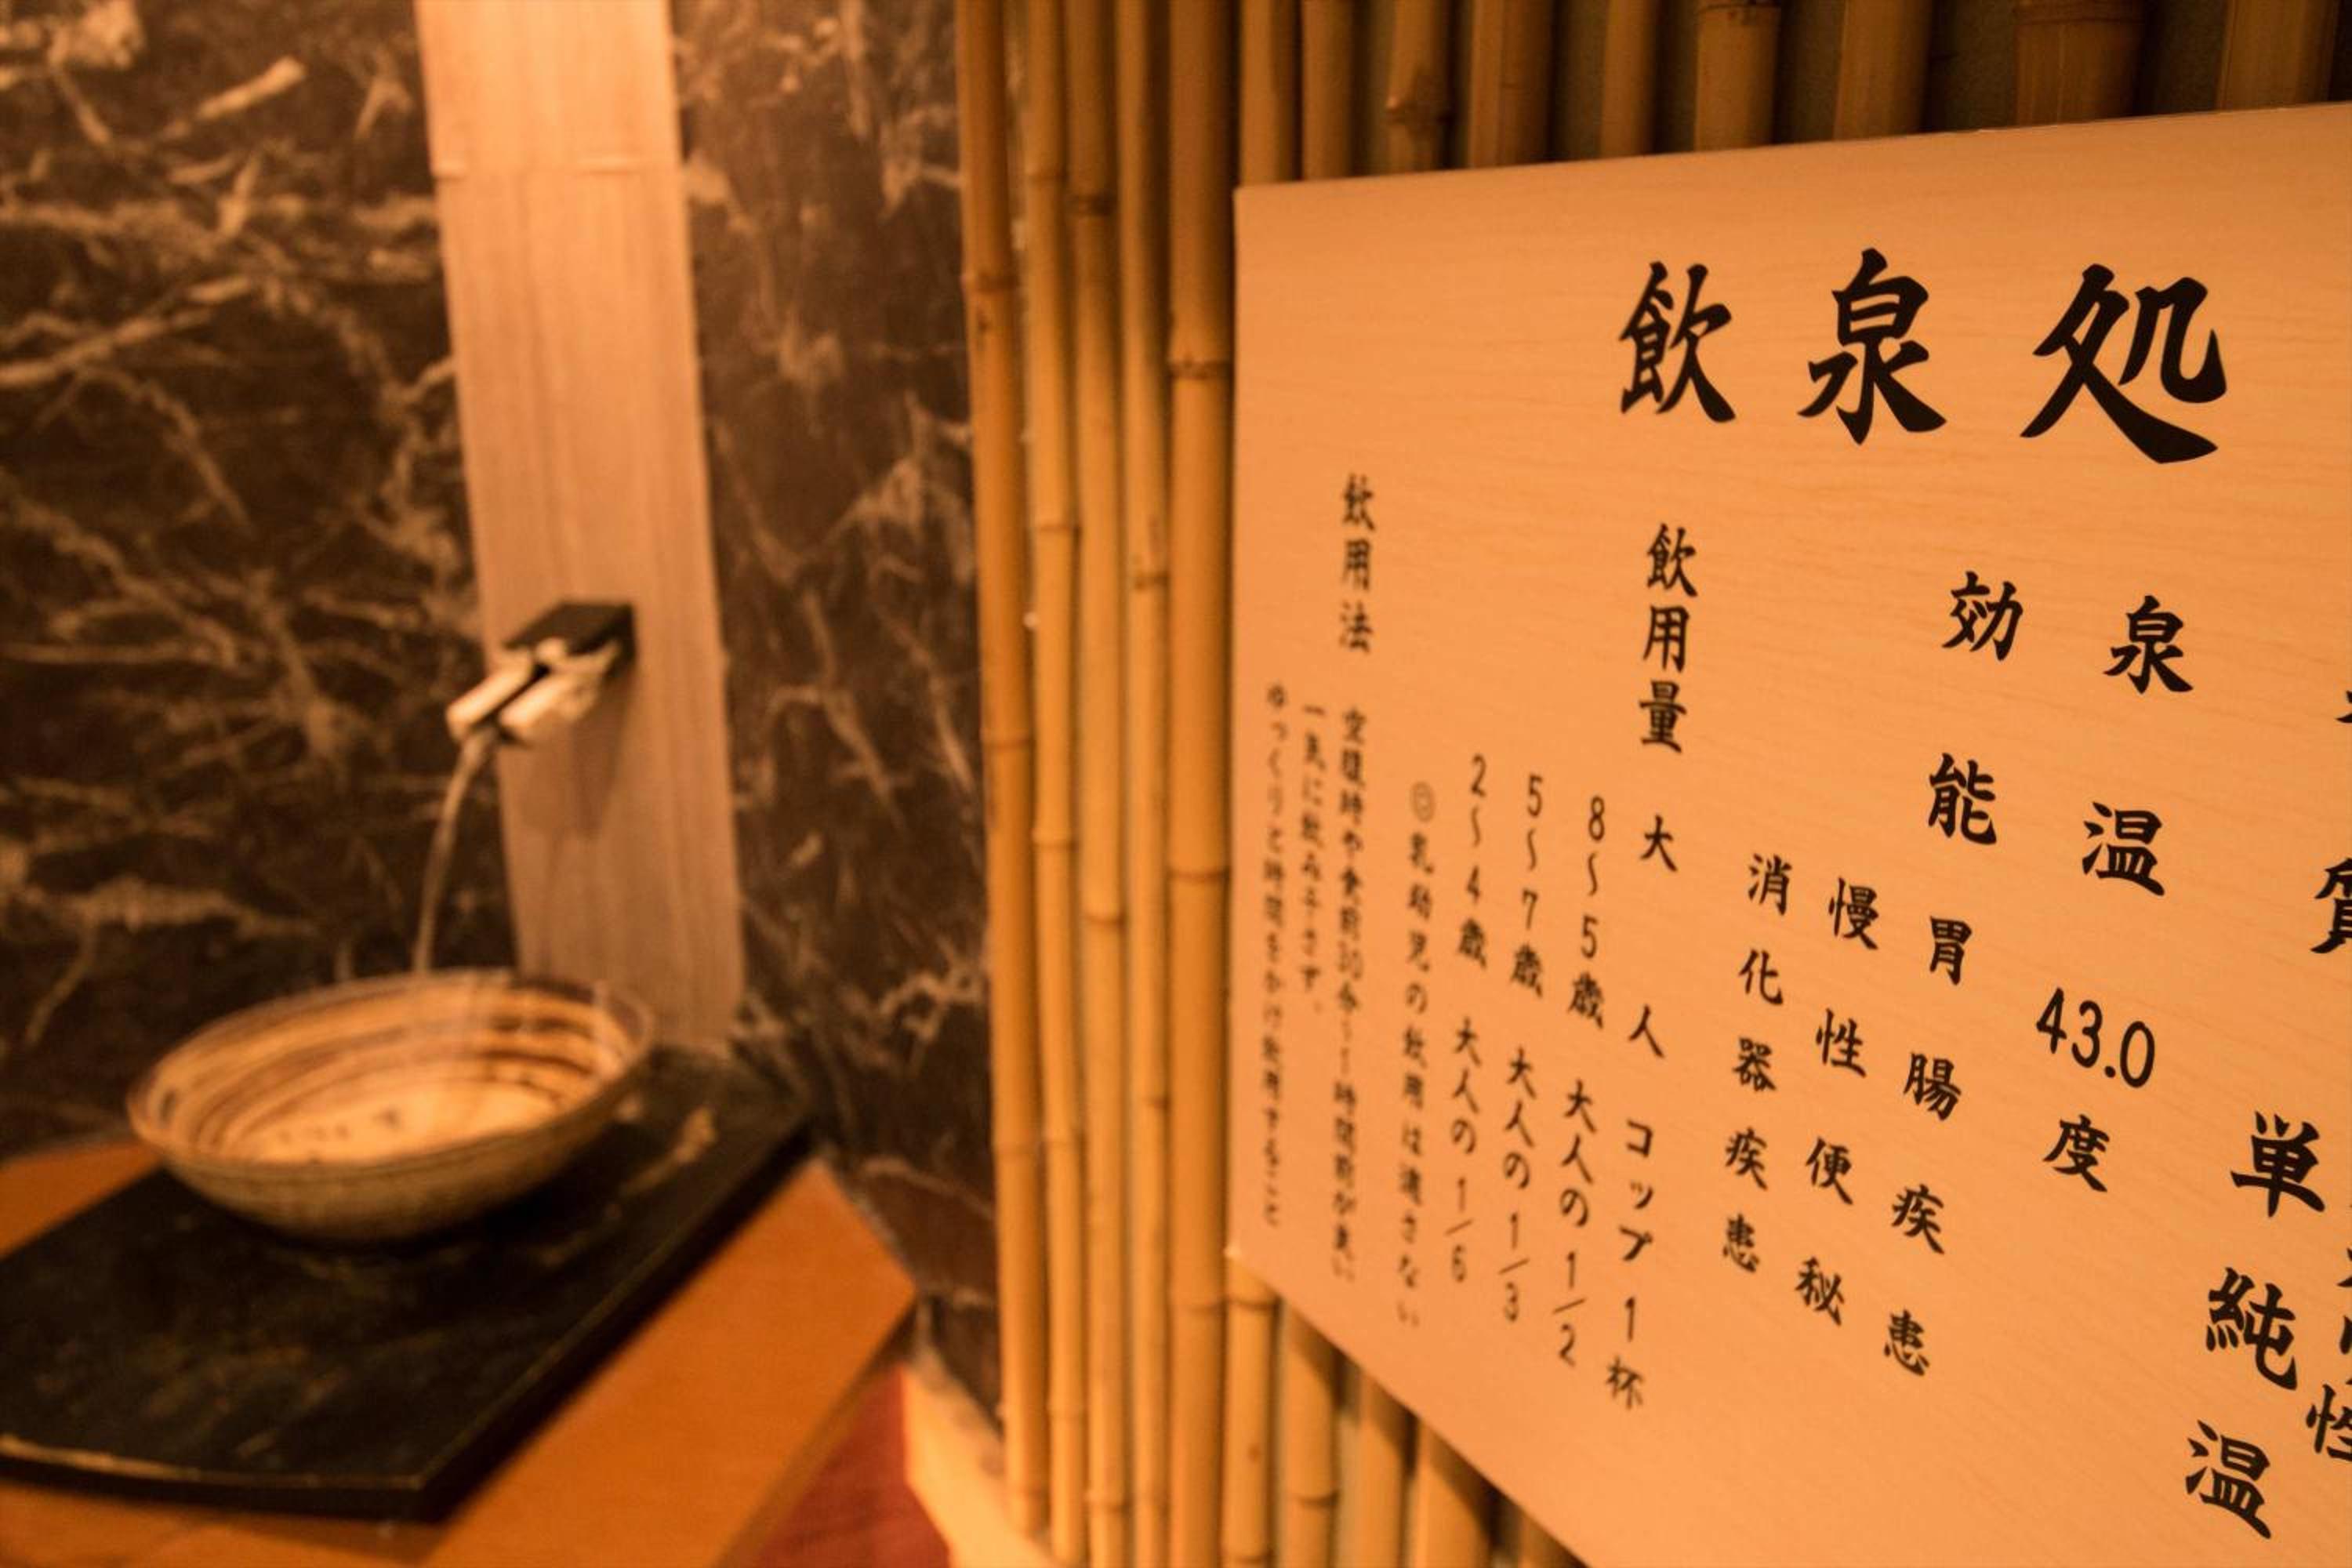 飲泉処
質 単純温
泉温 43.0度
効能 胃腸疾患
慢性便秘
消化器疾患
飲用量 大人 コップ1杯
8〜5歳 大人の1/2
5〜7歳 大人の1/3
2〜4歳 大人の1/6
◎乳幼児の飲用は適さない
飲用法 空腹時や食前30分〜1時間前が良い
一気に飲み干さず、
ゆっくりと時間をかけ飲用すること